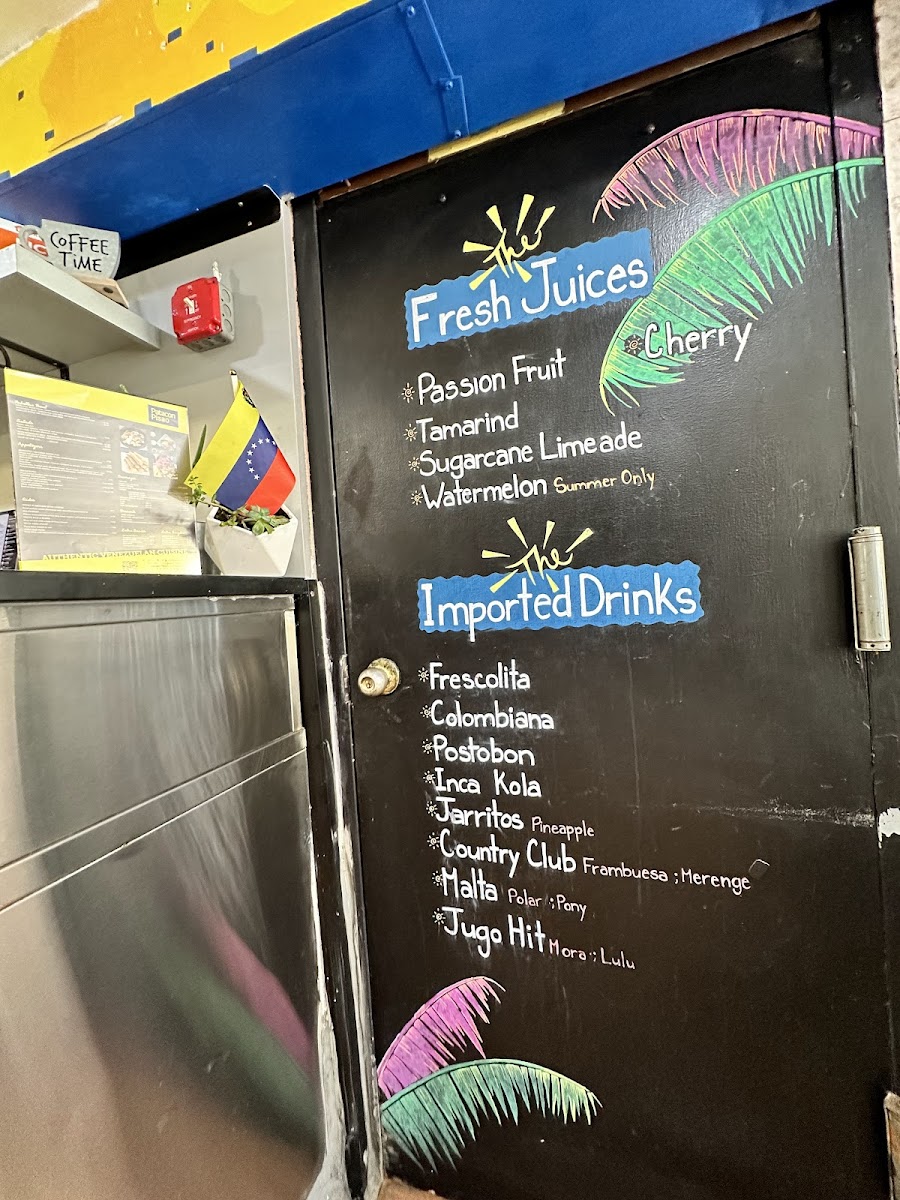 COFFEE
TIME
Patacon
Pisao
AUTHENTIC VENEZUELAN CUISINE
The
Fresh Juices
Cherry
Passion Fruit
Tamarind
Sugarcane Limeade
Watermelon Summer Only
The
Imported Drinks
Frescolita
Colombiana
Postobon
Inca Kola
Jarritos Pineapple
Country Club Frambuesa ; Merenge
Malta Polar ; Pony
Jugo Hit Mora ; Lulu